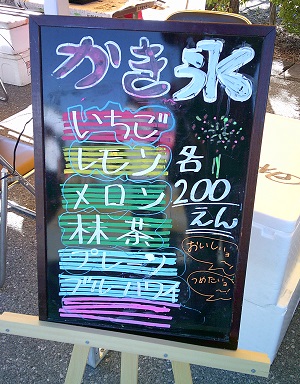 かき氷
いちご
レモン
メロン
抹茶
プレーン
ブルーハワイ
各
200
えん
おいしいョ
つめたいョ